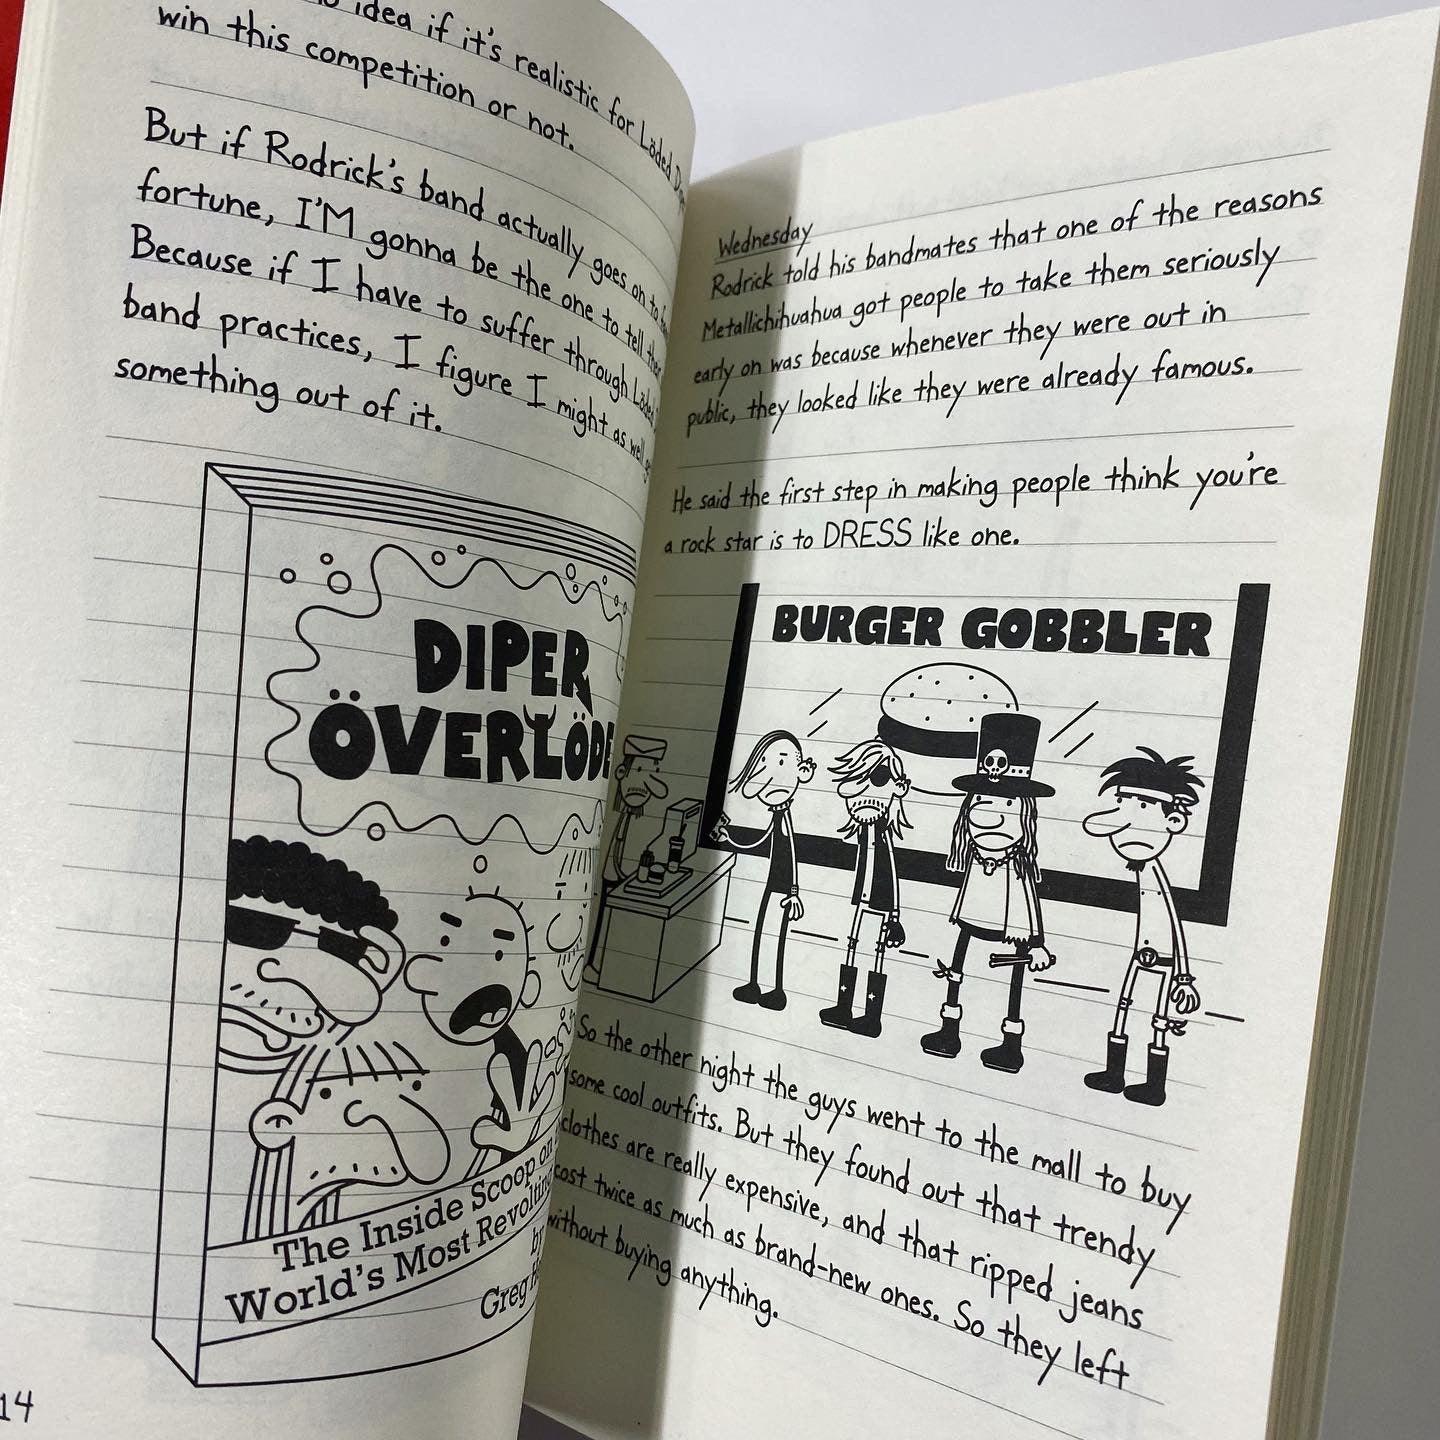 idea if it's realistic for Löded
win this competition or not.
But if Rodrick's band actually goes on to
fortune, I'M gonna be the one to tell their
Because if I have to suffer through Löded
band practices, I figure I might as well get
something out of it.
DIPER
ÖVERLÖDE
The Inside Scoop on
World's Most Revolting
by
Greg
14
Wednesday
Rodrick told his bandmates that one of the reasons
Metallichihuahua got people to take them seriously
early on was because whenever they were out in
public, they looked like they were already famous.
He said the first step in making people think you're
a rock star is to DRESS like one.
BURGER GOBBLER
So the other night the guys went to the mall to buy
some cool outfits. But they found out that trendy
clothes are really expensive, and that ripped jeans
cost twice as much as brand-new ones. So they left
without buying anything.